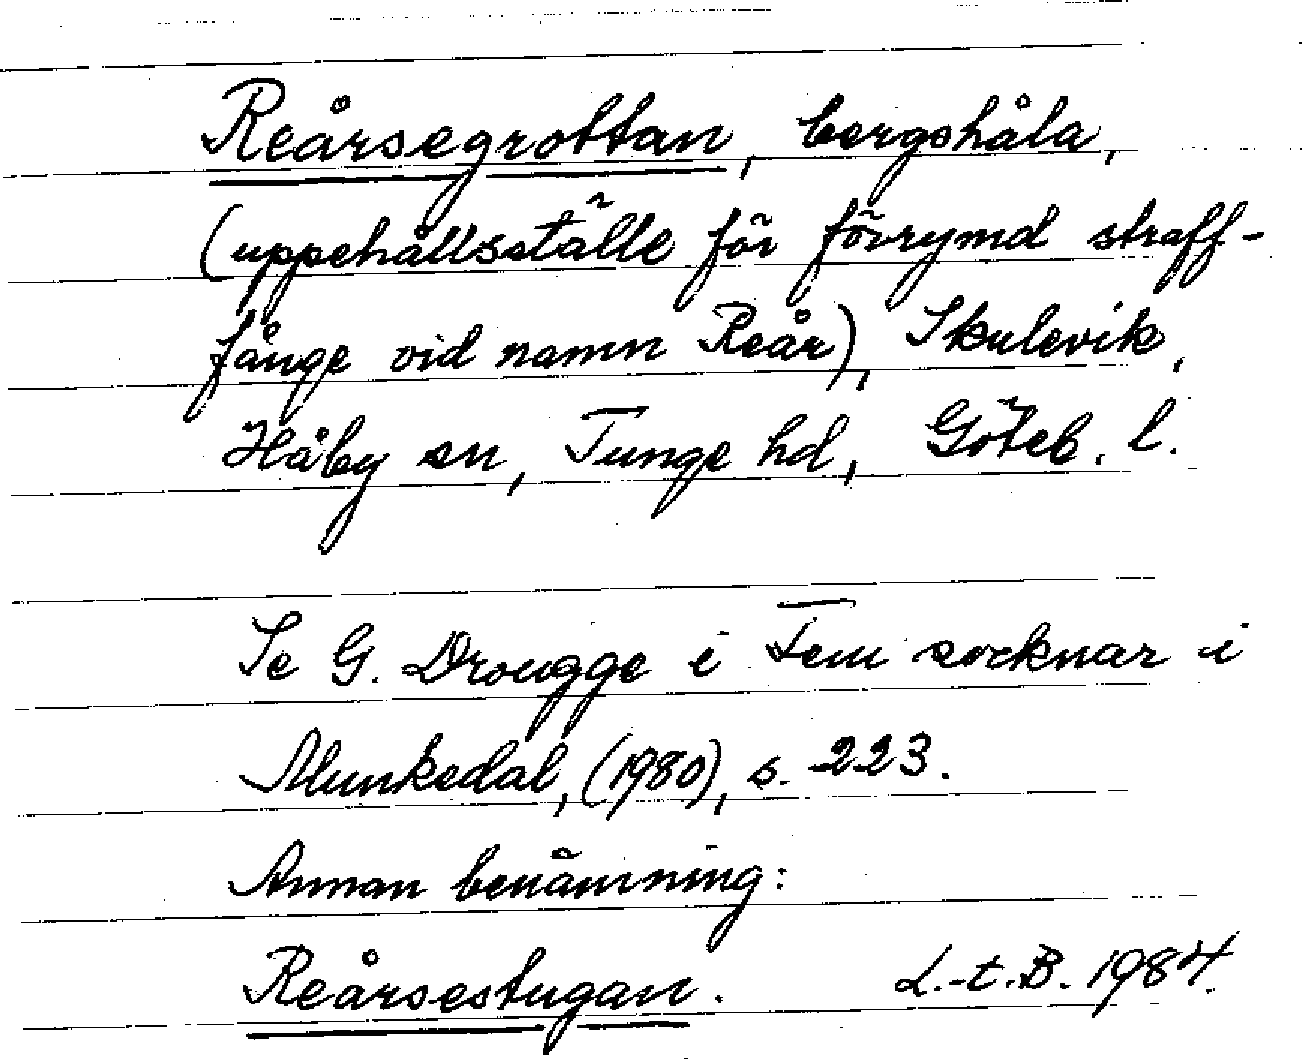 Reårsegrottan, bergshåla,
(uppehållsställe för förrymd straff-
fånge vid namn Reår), Skulevik,
Håby sn, Tunge hd, Göteb. l.
Se G. Drougge i Fem socknar i
Munkedal, (1980), s. 223.
Annan benämning:
Reårsestugan. L.-t.B. 1984.